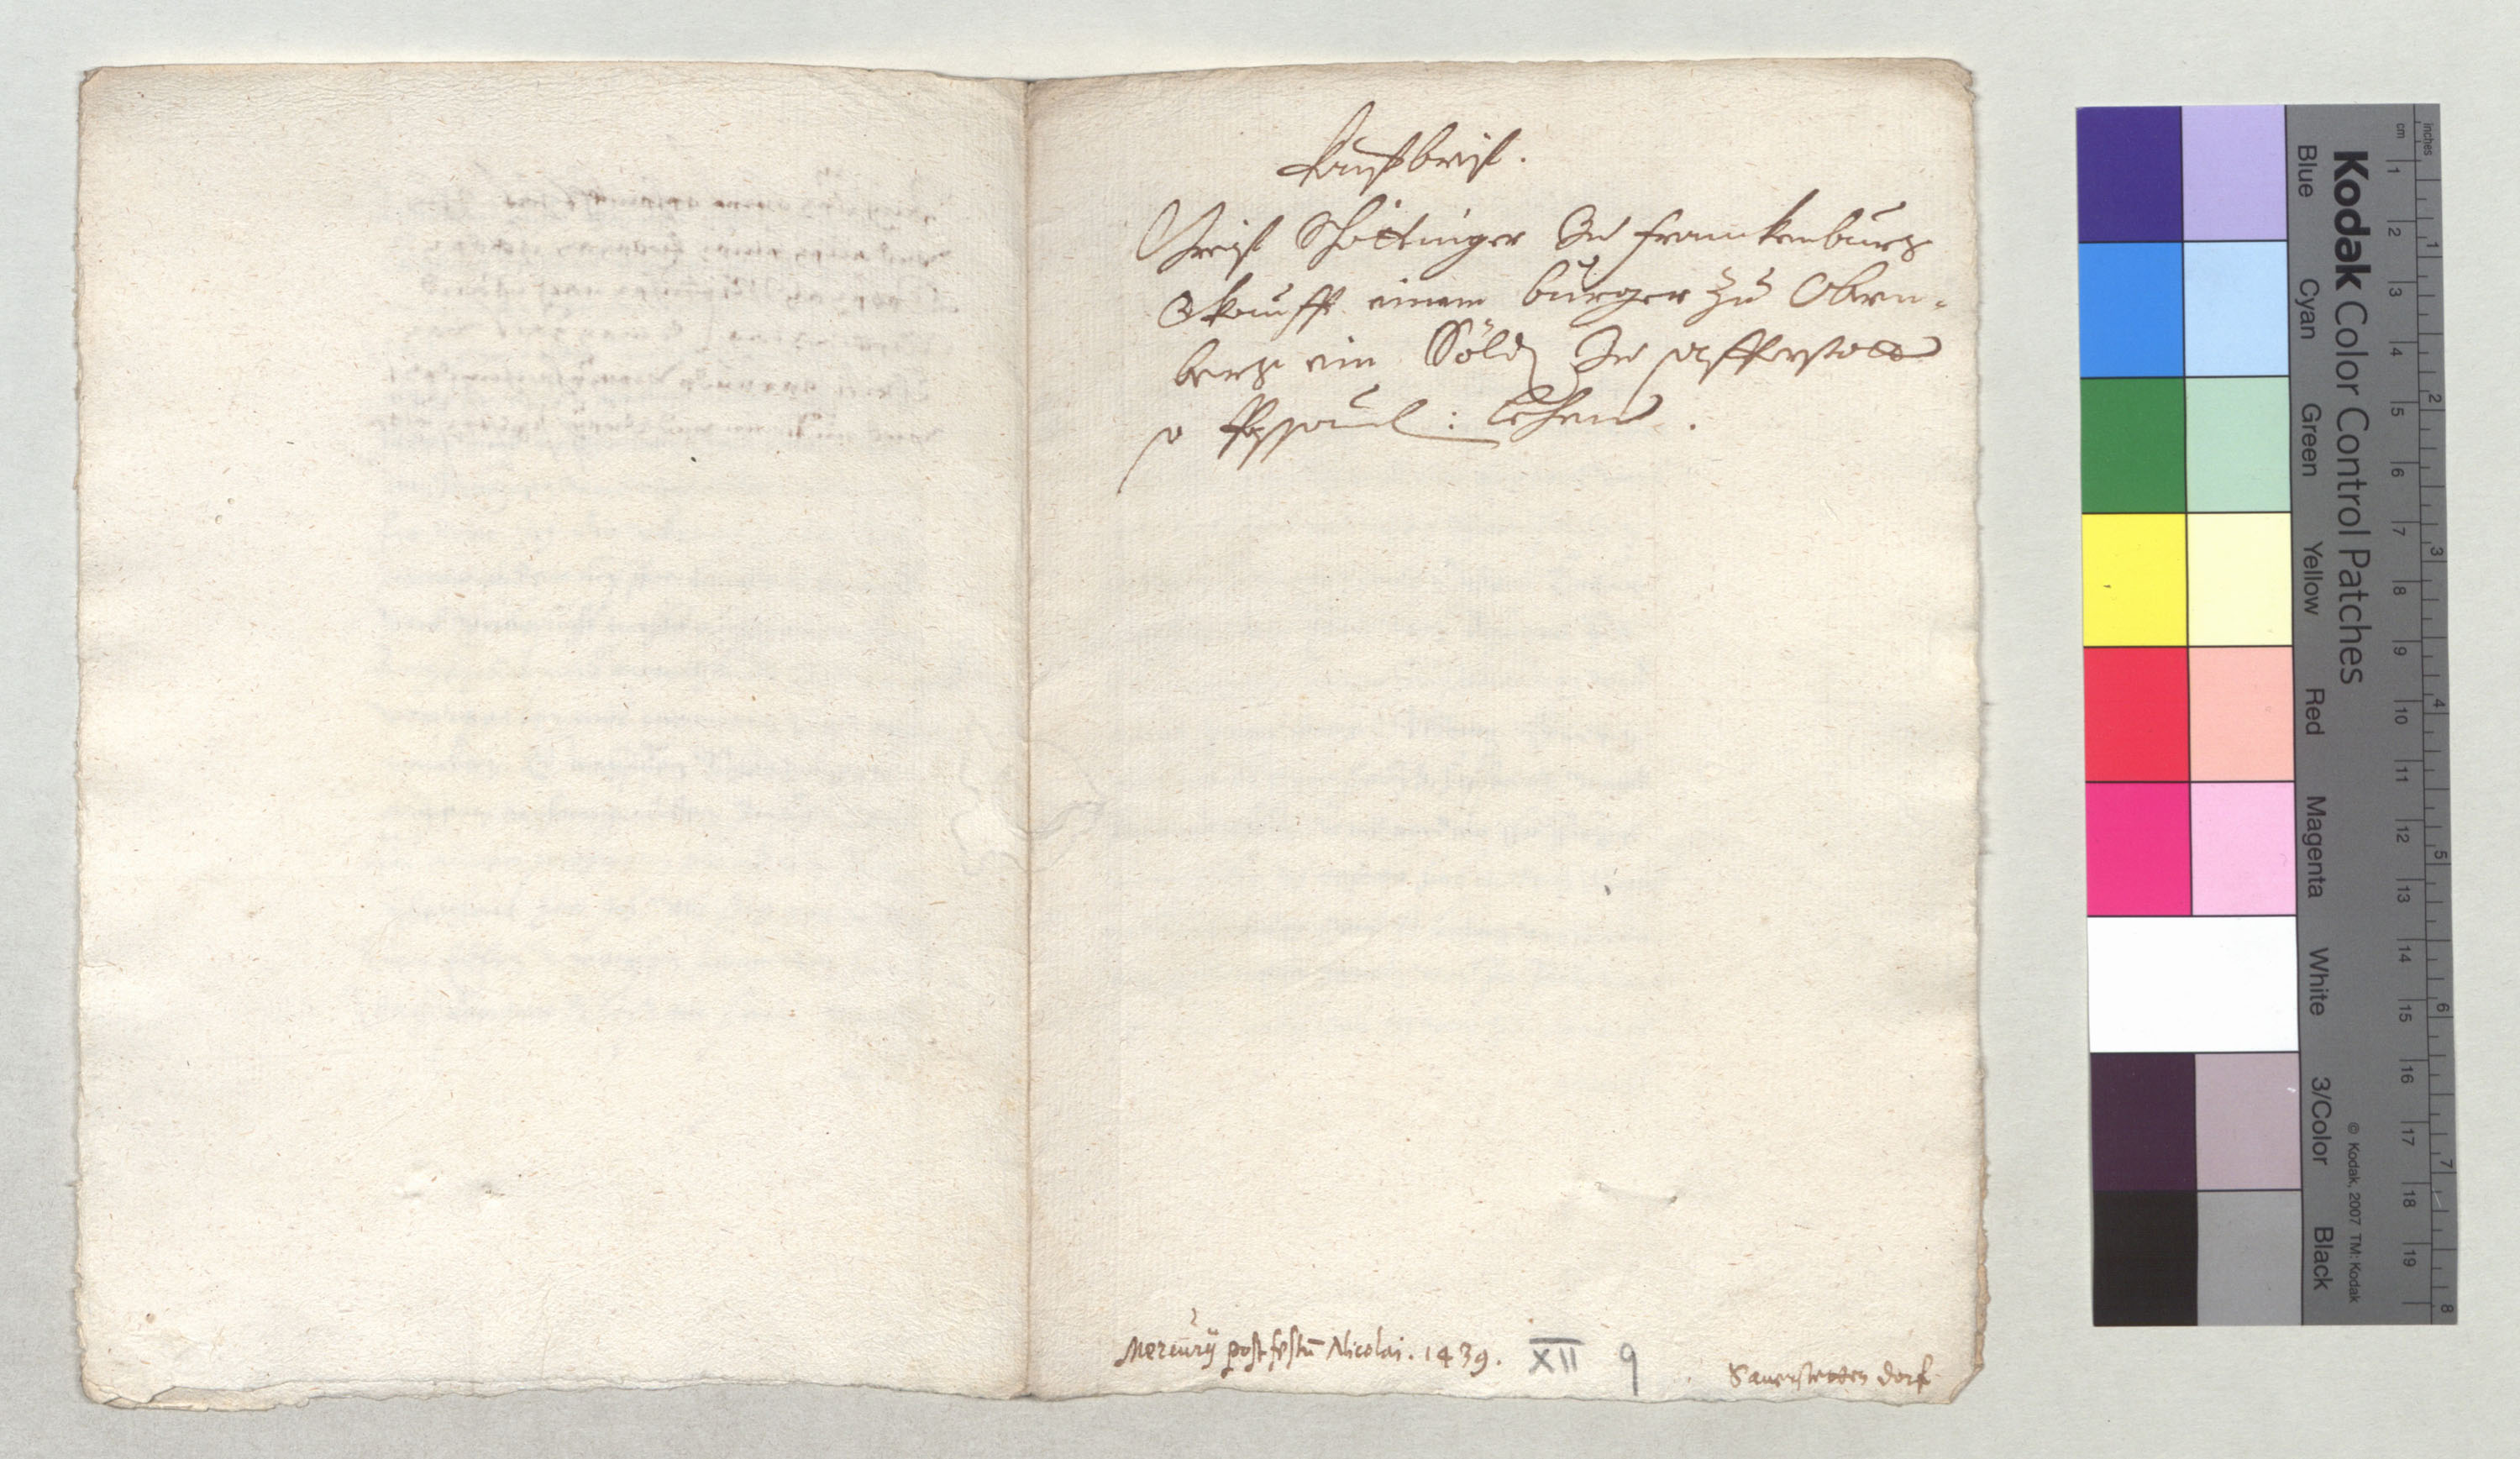 Kauffbrief.
Schöttinger Zu Franckenburg
Vkaufft einem burger zu Obern-
berg ein Söldn Zu safferstett
so Passauel: Lehen.
Mercurij post festū Nicolai. 1439. XII 9
Saverstetten dorf
Kodak Color Control Patches
Blue Cyan Green Yellow Red Magenta White 3/Color Black
© Kodak, 2007 TM: Kodak
inches 1 2 3 4 5 6 7 8
cm 1 2 3 4 5 6 7 8 9 10 11 12 13 14 15 16 17 18 19